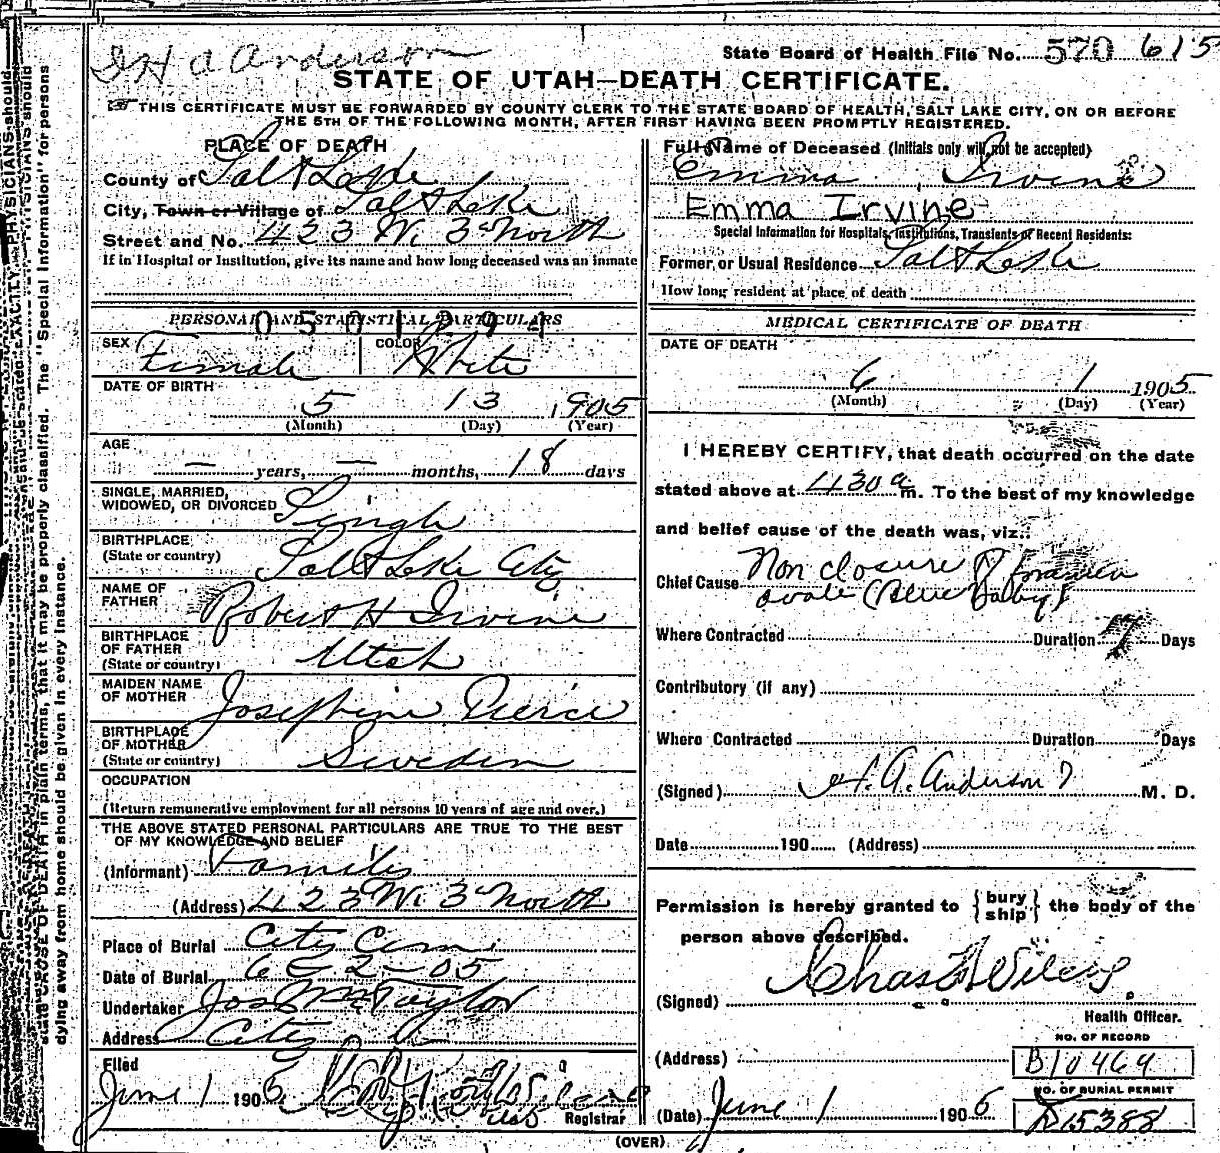 H A Anderson
State Board of Health File No. 570 615
STATE OF UTAH—DEATH CERTIFICATE.
THIS CERTIFICATE MUST BE FORWARDED BY COUNTY CLERK TO THE STATE BOARD OF HEALTH, SALT LAKE CITY, ON OR BEFORE
THE 5TH OF THE FOLLOWING MONTH, AFTER FIRST HAVING BEEN PROMPTLY REGISTERED.
PLACE OF DEATH
County of Salt Lake
City, Town or Village of Salt Lake
Street and No. 423 W. 3d North
If in Hospital or Institution, give its name and how long deceased was an inmate
PERSONAL AND STATISTICAL PARTICULARS
0501294
SEX Female COLOR White
DATE OF BIRTH
5 13 1905
(Month) (Day) (Year)
AGE
— years, — months, 18 days
SINGLE, MARRIED,
WIDOWED, OR DIVORCED Single
BIRTHPLACE
(State or country) Salt Lake City
NAME OF
FATHER Robert H Irvine
BIRTHPLACE
OF FATHER
(State or country) Utah
MAIDEN NAME
OF MOTHER Josephine Pierce
BIRTHPLACE
OF MOTHER
(State or country) Sweden
OCCUPATION
(Return remunerative employment for all persons 10 years of age and over.)
THE ABOVE STATED PERSONAL PARTICULARS ARE TRUE TO THE BEST
OF MY KNOWLEDGE AND BELIEF
(Informant) Family
(Address) 423 W. 3d North
Place of Burial City Cem.
Date of Burial 6-2-05
Undertaker Jos Wm Taylor
Address City
Filed
June 1 1905
Registrar
Full Name of Deceased (Initials only will not be accepted)
Emma Irvine
Emma Irvine
Special Information for Hospitals, Institutions, Transients or Recent Residents:
Former or Usual Residence Salt Lake
How long resident at place of death
MEDICAL CERTIFICATE OF DEATH
DATE OF DEATH
6 1 1905
(Month) (Day) (Year)
I HEREBY CERTIFY, that death occurred on the date
stated above at 430 a m. To the best of my knowledge
and belief cause of the death was, viz.:
Chief Cause Non closure of foramen
ovale (Blue Baby)
Where Contracted Duration Days
Contributory (if any)
Where Contracted Duration Days
(Signed) H. A. Anderson M. D.
Date 190 (Address)
Permission is hereby granted to {bury ship} the body of the
person above described.
(Signed)
Health Officer.
(Address)
NO. OF RECORD
B10464
NO. OF BURIAL PERMIT
(Date) June 1 1905 D15388
(OVER)
CAUSE OF DEATH in plain terms, that it may be properly classified. The "Special Information" for persons
dying away from home should be given in every instance.